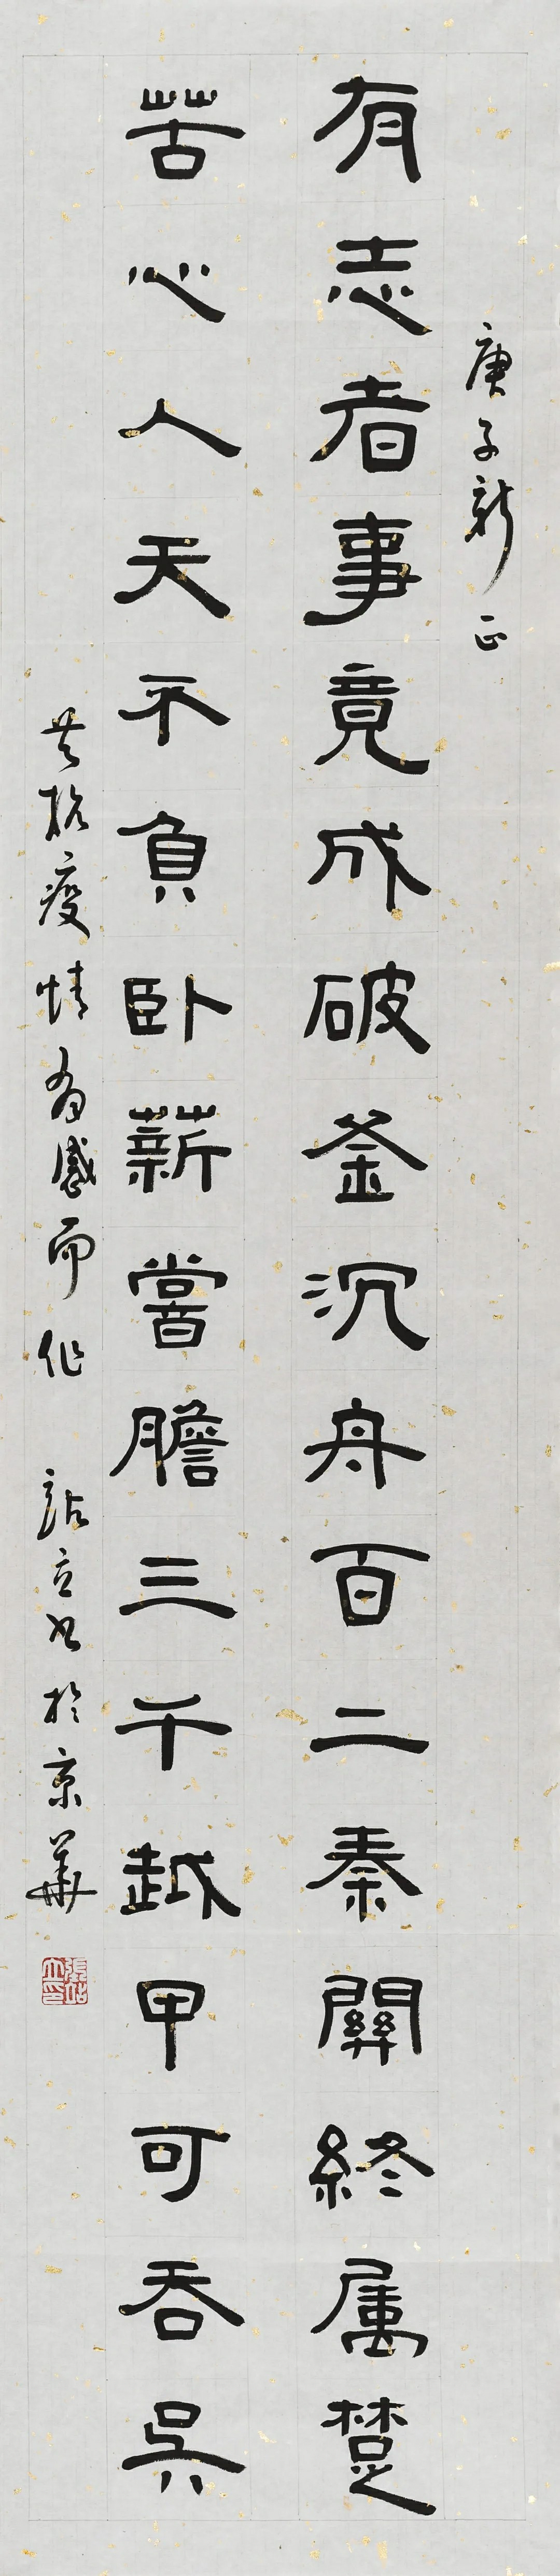 庚子新正
有志者事竟成破釜沉舟百二秦關終属楚
苦心人天不負卧薪嘗膽三千越甲可吞吳
共抗疫情有感而作 於京華